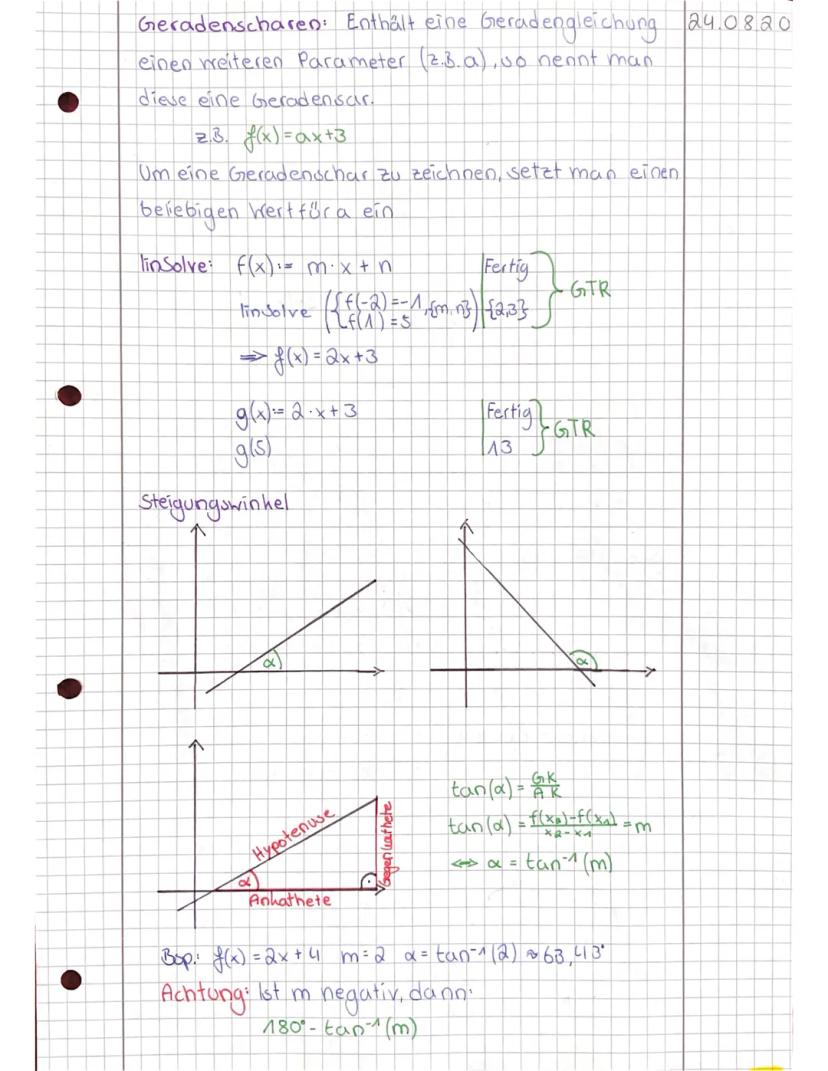 Geradenscharen: Enthält eine Geradengleichung 24.08.20
einen weiteren Parameter (z.B. a), so nennt man
diese eine Geradensar.
z.B. f(x) = ax+3
Um eine Geradenschar zu zeichnen, setzt man einen
beliebigen Wert für a ein
linsolve: f(x):= m·x+n | Fertig
linsolve ({f(-2)=-1 f(1)=5, {m,n}) | {2,3} } GTR
⇒ f(x) = 2x+3
g(x):= 2·x+3 | Fertig
g(5) | 13 } GTR
Steigungswinkel
α α
tan(α) = GK/AK
Hypotenuse
Gegenkathete
tan(α) = f(x2)-f(x1)/x2-x1 = m
⇔ α = tan⁻¹(m)
α
Ankathete
Bsp.: f(x) = 2x+4 m=2 α = tan⁻¹(2) ≈ 63,43°
Achtung: Ist m negativ, dann:
180° - tan⁻¹(m)